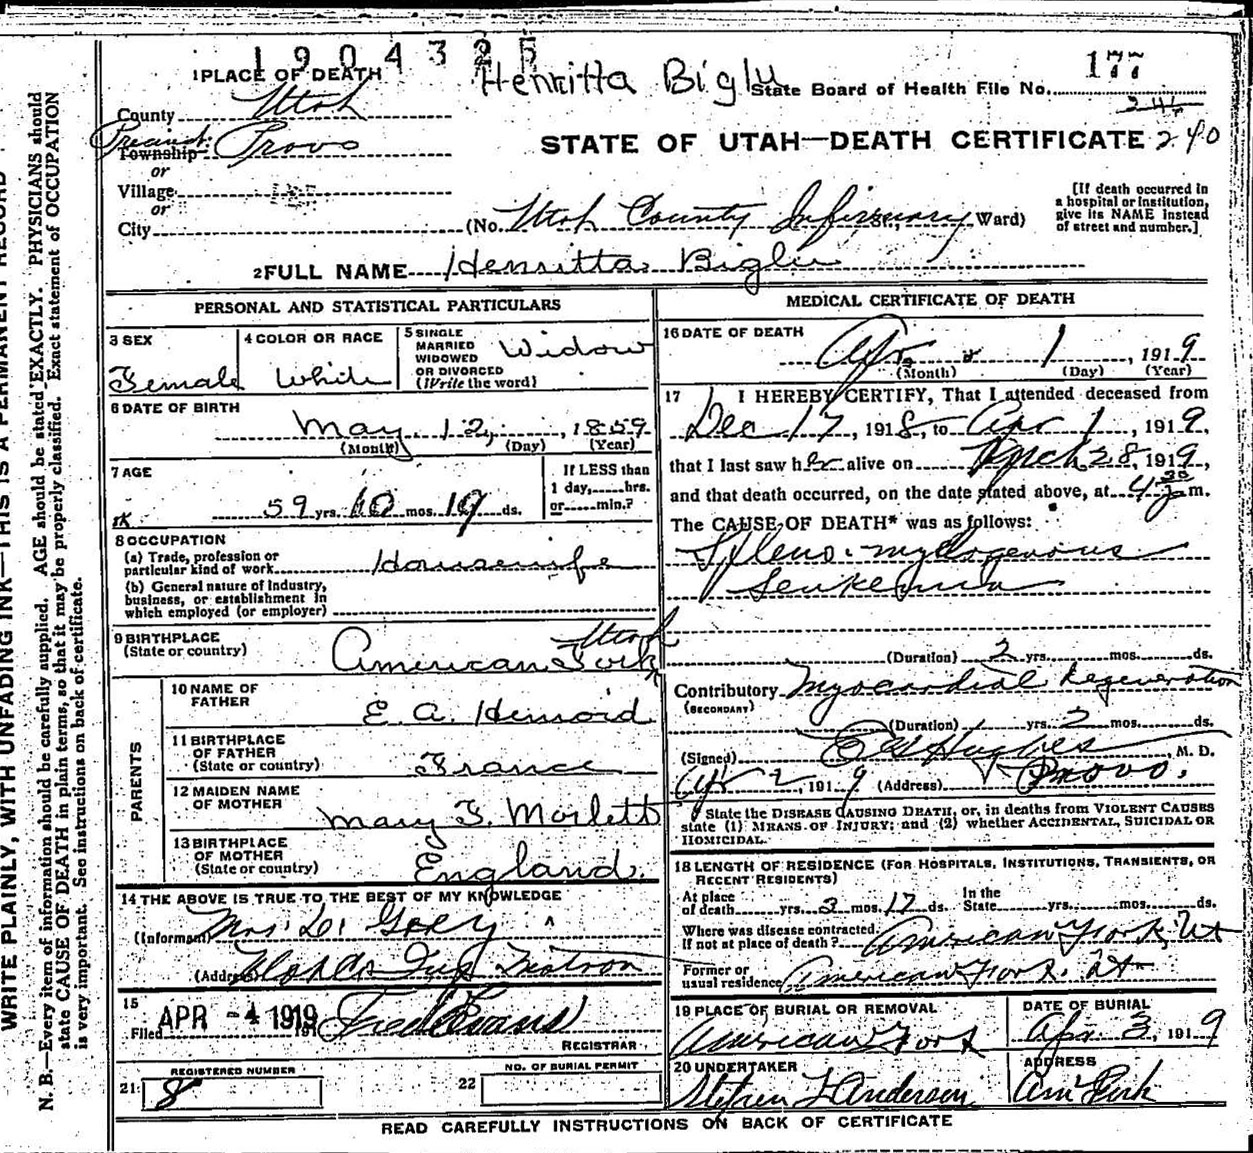 1904325
Henritta Biglu
1 PLACE OF DEATH
State Board of Health File No. 177
County Utah
240
STATE OF UTAH—DEATH CERTIFICATE 240
Precinct
Township Provo
or
Village
or
City
(No. Utah County Infirmary St., Ward)
[If death occurred in
a hospital or institution,
give its NAME instead
of street and number.]
2 FULL NAME Henritta Biglu
PERSONAL AND STATISTICAL PARTICULARS
3 SEX
Female
4 COLOR OR RACE
White
5 SINGLE
MARRIED
WIDOWED
OR DIVORCED
(Write the word)
Widow
6 DATE OF BIRTH
May 12, 1859
(Month) (Day) (Year)
7 AGE
59 yrs. 10 mos. 19 ds.
If LESS than
1 day, hrs.
or min.?
8 OCCUPATION
(a) Trade, profession or
particular kind of work Housewife
(b) General nature of Industry,
business, or establishment in
which employed (or employer)
9 BIRTHPLACE
(State or country)
Utah
American Fork
PARENTS
10 NAME OF
FATHER
E. A. Henroid
11 BIRTHPLACE
OF FATHER
(State or country)
France
12 MAIDEN NAME
OF MOTHER
Mary F. Morlett
13 BIRTHPLACE
OF MOTHER
(State or country)
England.
14 THE ABOVE IS TRUE TO THE BEST OF MY KNOWLEDGE
(Informant) Mrs.
(Address) Matron
15
Filed APR -4 1919 191 Fred Evans
REGISTRAR
REGISTERED NUMBER
21: 8
NO. OF BURIAL PERMIT
22
MEDICAL CERTIFICATE OF DEATH
16 DATE OF DEATH
Apr. 1, 1919
(Month) (Day) (Year)
17 I HEREBY CERTIFY, That I attended deceased from
Dec 17, 1918, to Apr 1, 1919,
that I last saw her alive on Mch 28, 1919,
and that death occurred, on the date stated above, at 4 30 m.
The CAUSE OF DEATH* was as follows:
Spleno-myllogenous
Leukemia
(Duration) 2 yrs. mos. ds.
Contributory Myocardial Degeneration
(SECONDARY)
(Duration) yrs. 2 mos. ds.
(Signed) Hughes, M. D.
Apr 2, 1919 (Address) Provo.
State the DISEASE CAUSING DEATH, or, in deaths from VIOLENT CAUSES
state (1) MEANS OF INJURY; and (2) whether ACCIDENTAL, SUICIDAL OR
HOMICIDAL.
18 LENGTH OF RESIDENCE (FOR HOSPITALS, INSTITUTIONS, TRANSIENTS, OR
RECENT RESIDENTS)
At place
of death yrs. 3 mos. 17 ds.
In the
State yrs. mos. ds.
Where was disease contracted,
If not at place of death? American Fork, Ut
Former or
usual residence American Fork. Ut
19 PLACE OF BURIAL OR REMOVAL
American Fork
DATE OF BURIAL
Apr. 3, 1919
20 UNDERTAKER
Stephen L Anderson
ADDRESS
Am Fork
READ CAREFULLY INSTRUCTIONS ON BACK OF CERTIFICATE
WRITE PLAINLY, WITH UNFADING INK—THIS IS A PERMANENT RECORD
N. B.—Every item of information should be carefully supplied. AGE should be stated EXACTLY. PHYSICIANS should
state CAUSE OF DEATH in plain terms, so that it may be properly classified. Exact statement of OCCUPATION
is very important. See instructions on back of certificate.